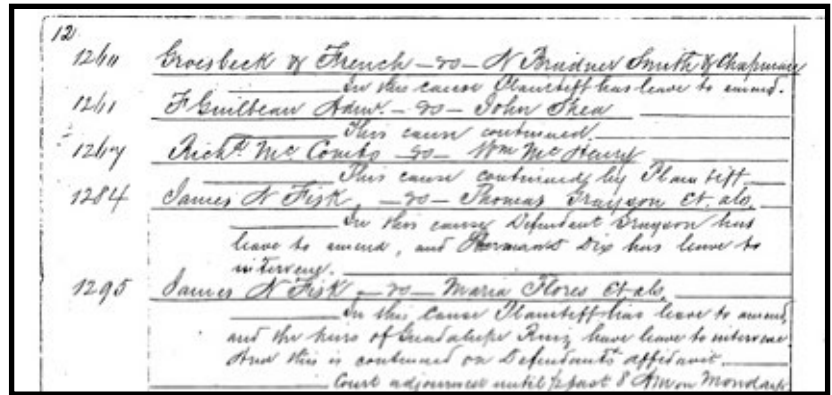 12
1260 Groesbeck & French — vs — N Smith & Chapman
In this cause Plaintiff has leave to amend.
1261 F Guilbeau Admr. — vs — John Shea
This cause continued.
Richd. McCombs — vs — Wm McHenry
This cause continued by Plaintiff
1284 James N Fisk, — vs — Thomas Grayson et. als,
In this cause Defendant Grayson has
leave to amend, and Dix has leave to
intervene.
1295 James N Fisk — vs — Maria Flores et als,
In this cause Plaintiff has leave to amend,
and the heirs of Guadalupe Ruiz have leave to intervene.
And this is continued on Defendants affidavit.
Court adjourned until ½ past 8 AM on Monday